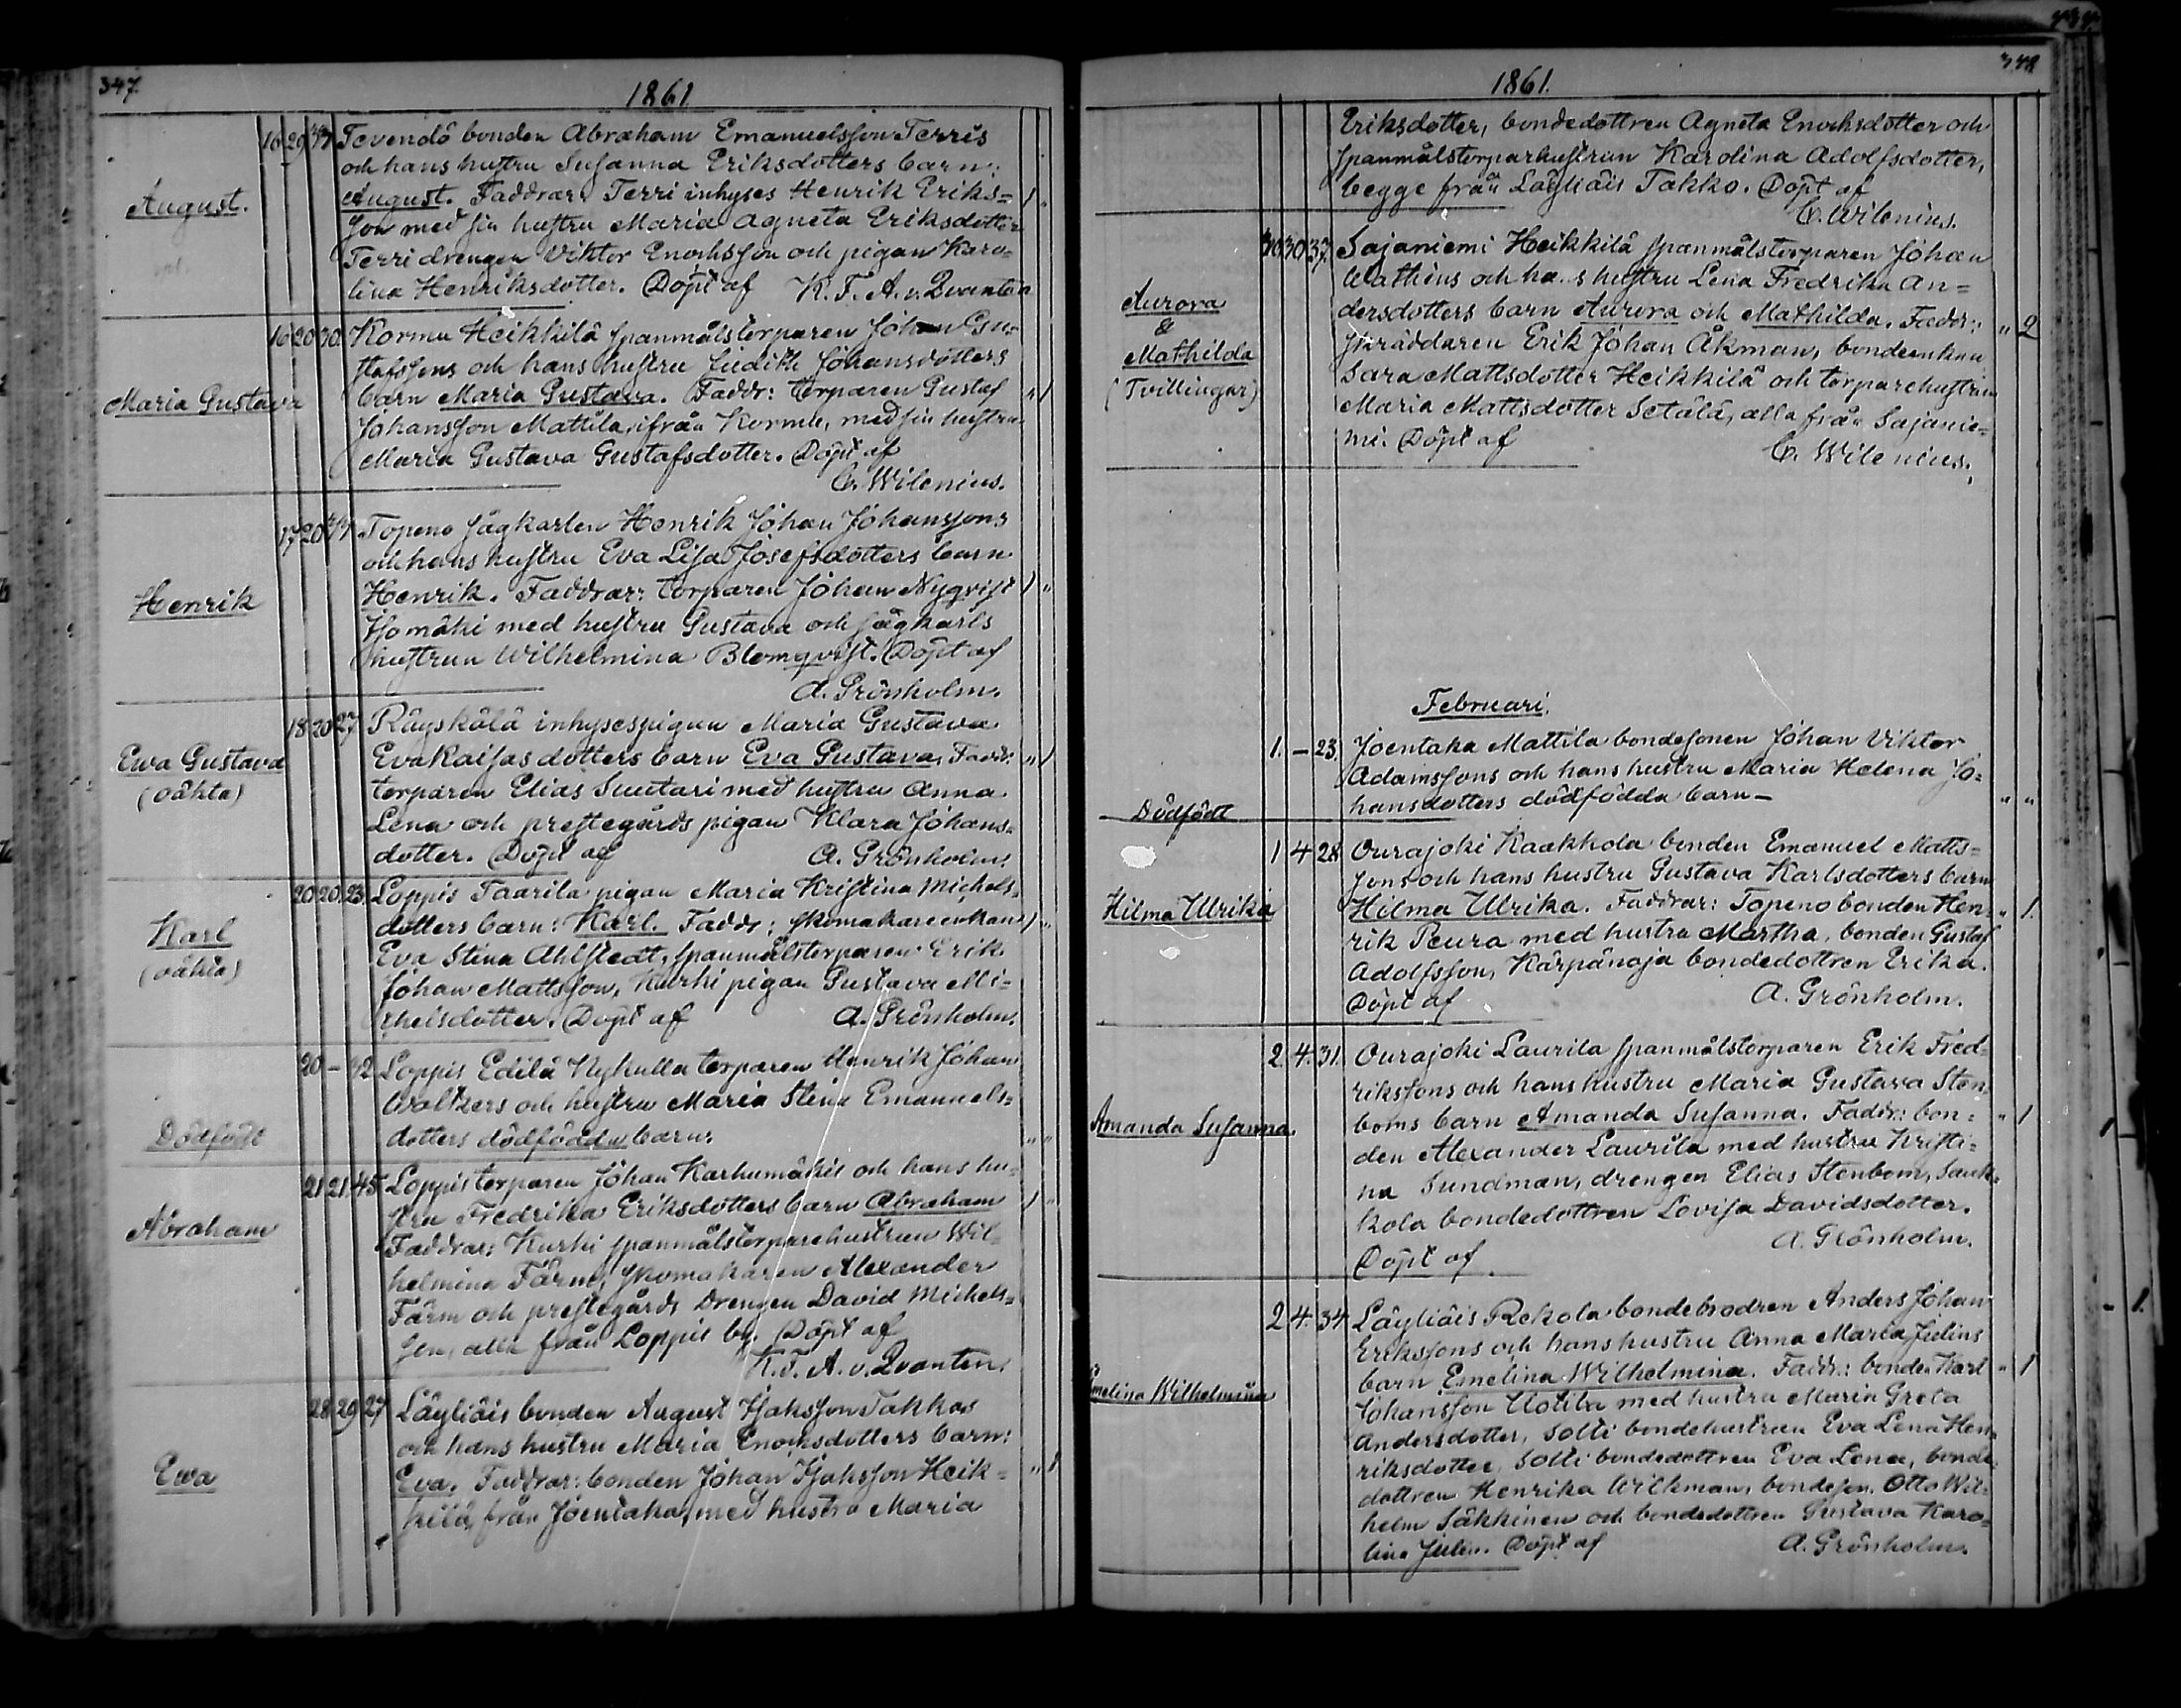 347.
1861
August.
16 29 Tevendö bonden Abraham Emanuelsson Terris
och hans hustru Susanna Eriksdotters barn:
August. Faddrar: Terri inhyses Henrik Eriks=
son med sin hustru Maria Agneta Eriksdotter
Terri drengen Viktor Enochsson och pigan Karo=
lina Henriksdotter. Döpt af K. F. A. v. Qvanten
Maria Gustava
16 20 30. Kormu Heikkilä spanmålstorparen Johan Gu=
stafssons och hans hustru Judith Johansdotters
barn Maria Gustava. Faddr: torparen Gustaf " 1
Johansson Mattila, ifrån Kormu, med sin hustru
Maria Gustava Gustafsdotter. Döpt af
C. Wilenius.
Henrik
17 20 Topeno sågkarlen Henrik Johan Johanssons
och hans hustru Eva Lisa Josefsdotters barn
Henrik. Faddrar: torparen Johan Nyqvist 1 "
Isomäki med hustru Gustava och sågkarls
hustrun Wilhelmina Blomqvist. Döpt af
A. Grönholm.
Ewa Gustava
(oäkta)
18 20 27 Räyskälä inhysespigan Maria Gustava
Evakaisasdotters barn Eva Gustava, Faddr: " 1
torparen Elias Suutari med hustru Anna
Lena och prestegårds pigan Klara Johans=
dotter. Döpt af A. Grönholm.
Karl
(oäkta)
20 20. 23. Loppis Taarila pigan Maria Kristina Michels=
dotters barn: Karl. Faddr: skomakareenkan 1 "
Eva Stina Ahlstedt, spanmålstorparen Erik
Johan Mattsson, Kurki pigan Gustava Mi=
chelsdotter. Döpt af A. Grönholm.
Dödfödt
20 – 42 Loppis Edilä Nykulla torparen Henrik Johan
Walters och hustru Maria Stina Emanuels=
dotters dödfödda barn. " "
Abraham
21 21. 45 Loppis torparen Johan Karhumäkis och hans hu=
stru Fredrika Eriksdotters barn Abraham 1 "
Faddrar: Kurki spanmålstorparehustrun Wil=
helmina Färm, skomakaren Alexander
Färm och prestegårds drengen David Michels=
son, alla från Loppis by. Döpt af
K. F. A. v. Qvanten.
Ewa
28 29 27 Läyliäis bonden August Isaksson Takkos
och hans hustru Maria Enochsdotters barn:
Eva. Faddrar: bonden Johan Isaksson Heik= " 1
kilä, från Joentaka, med hustru Maria
348
1861.
Eriksdotter, bondedottren Agneta Enochsdotter och
spanmålstorparhustrun Karolina Adolfsdotter,
begge från Läyliäis Takko. Döpt af
C. Wilenius.
Aurora
&
Mathilda
(Tvillingar)
30 30 37. Sajaniemi Heikkilä spanmålstorparen Johan
Mathius och hans hustru Lena Fredrika An=
dersdotters barn Aurora och Mathilda. Faddr: " 2
skräddaren Erik Johan Åkman, bondeenkan
Sara Mattsdotter Heikkilä och torparehustrun
Maria Mattsdotter Setälä, alla från Sajanie=
mi. Döpt af C. Wilenius.
Februari.
1. – 23. Joentaka Mattila bondesonen Johan Viktor
Adamssons och hans hustru Maria Helena Jo=
Dödfödt hansdotters dödfödda barn – " "
Hilma Ulrika
1 4 28 Ourajoki Kaakkola bonden Emanuel Matts=
sons och hans hustru Gustava Karlsdotters barn
Hilma Ulrika. Faddrar: Topeno bonden Hen= " 1.
rik Peura med hustru Martha, bonden Gustaf
Adolfsson, Kärpänoja bondedottren Erika.
Döpt af A. Grönholm.
Amanda Susanna.
2. 4. 31. Ourajoki Laurila spanmålstorparen Erik Fred=
rikssons och hans hustru Maria Gustava Sten=
boms barn Amanda Susanna. Faddr: bon= " 1
den Alexander Laurila med hustru Kristi=
na Sundman, drengen Elias Stenbom, Sauk=
kola bondedottren Lovisa Davidsdotter.
Döpt af A. Grönholm.
Emelina Wilhelmina
2 4. 34 Läyliäis Rekola bondebrodren Anders Johan
Erikssons och hans hustru Anna Maria Julins
barn Emelina Wilhelmina. Faddr: bonden Karl " 1
Johansson Uotila med hustru Maria Greta
Andersdotter, Solti bondehustrun Eva Lena Hen=
riksdotter, Solti bondedottren Eva Lena, bonde=
dottren Henrika Wilkman, bondeson Otto Wil=
helm Säkkinen och bondedottren Gustava Karo=
lina Julin. Döpt af A. Grönholm.